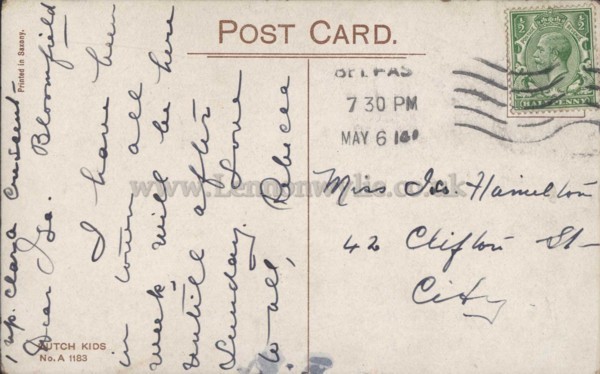 POST CARD.
Printed in Saxony.
1 up. Clara Crescent
Bloomfield
Dear Isa.
I have been
in town all
week will be here
untill after
Sunday. Love
to all, Rebecca
DUTCH KIDS
No. A 1183
BELFAS
7 30 PM
MAY 6
HALFPENNY
Miss Isa Hamilton
42 Clifton St
City
www.Lennonwylie.co.uk